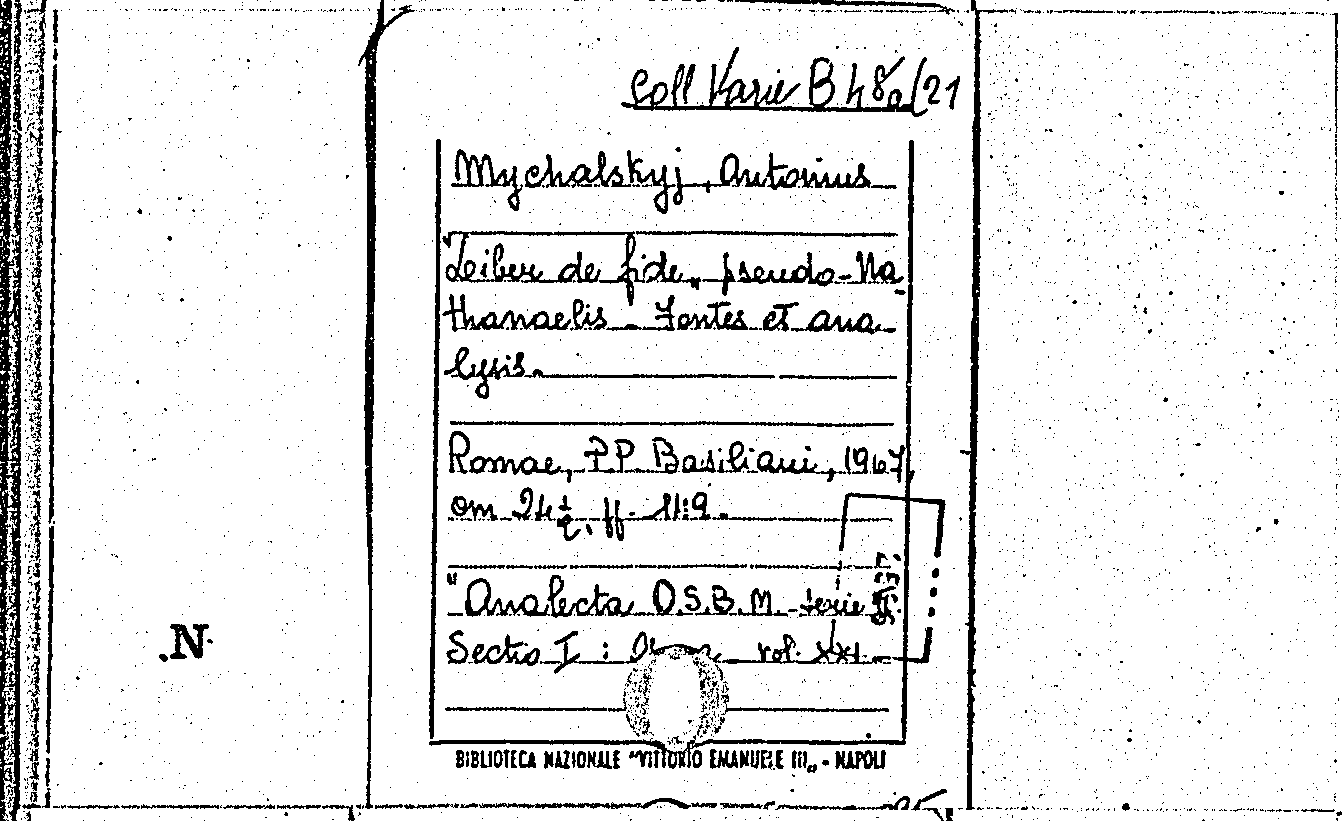 Coll Varie B 48a (21
Mychalskyj, Antonius
"Leiber de fide„ pseudo-Na
thanaelis - Fontes et ana-
lysis.
Romae, PP Basiliani, 1967,
cm 24½, ff.
"Analecta O.S.B.M. serie
Sectio I : vol. XXI.
.N.
BIBLIOTECA NAZIONALE "VITTORIO EMANUELE III„ - NAPOLI